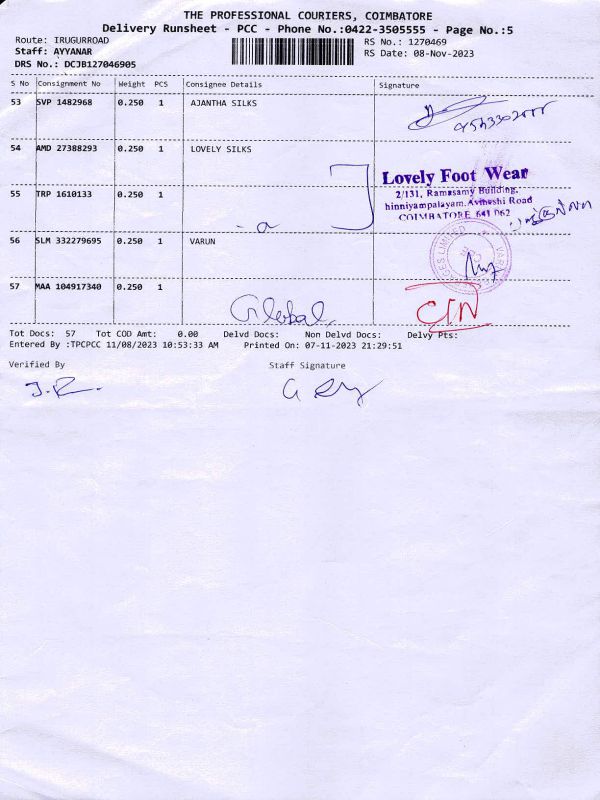 THE PROFESSIONAL COURIERS, COIMBATORE
Delivery Runsheet - PCC - Phone No.:0422-3505555 - Page No.:5
Route: IRUGURROAD
RS No.: 1270469
Staff: AYYANAR
RS Date: 08-Nov-2023
DRS No.: DCJB127046905
S No Consignment No Weight PCS Consignee Details Signature
53 SVP 1482968 0.250 1 AJANTHA SILKS
54 AMD 27388293 0.250 1 LOVELY SILKS
Lovely Foot Wear
2/131, Ramasamy Building,
hinniyampalayam, Avinashi Road
COIMBATORE 641 062
55 TRP 1610133 0.250 1
56 SLM 332279695 0.250 1 VARUN
57 MAA 104917340 0.250 1
Global
Tot Docs: 57 Tot COD Amt: 0.00 Delvd Docs: Non Delvd Docs: Delvy Pts:
Entered By :TPCPCC 11/08/2023 10:53:33 AM Printed On: 07-11-2023 21:29:51
Verified By Staff Signature